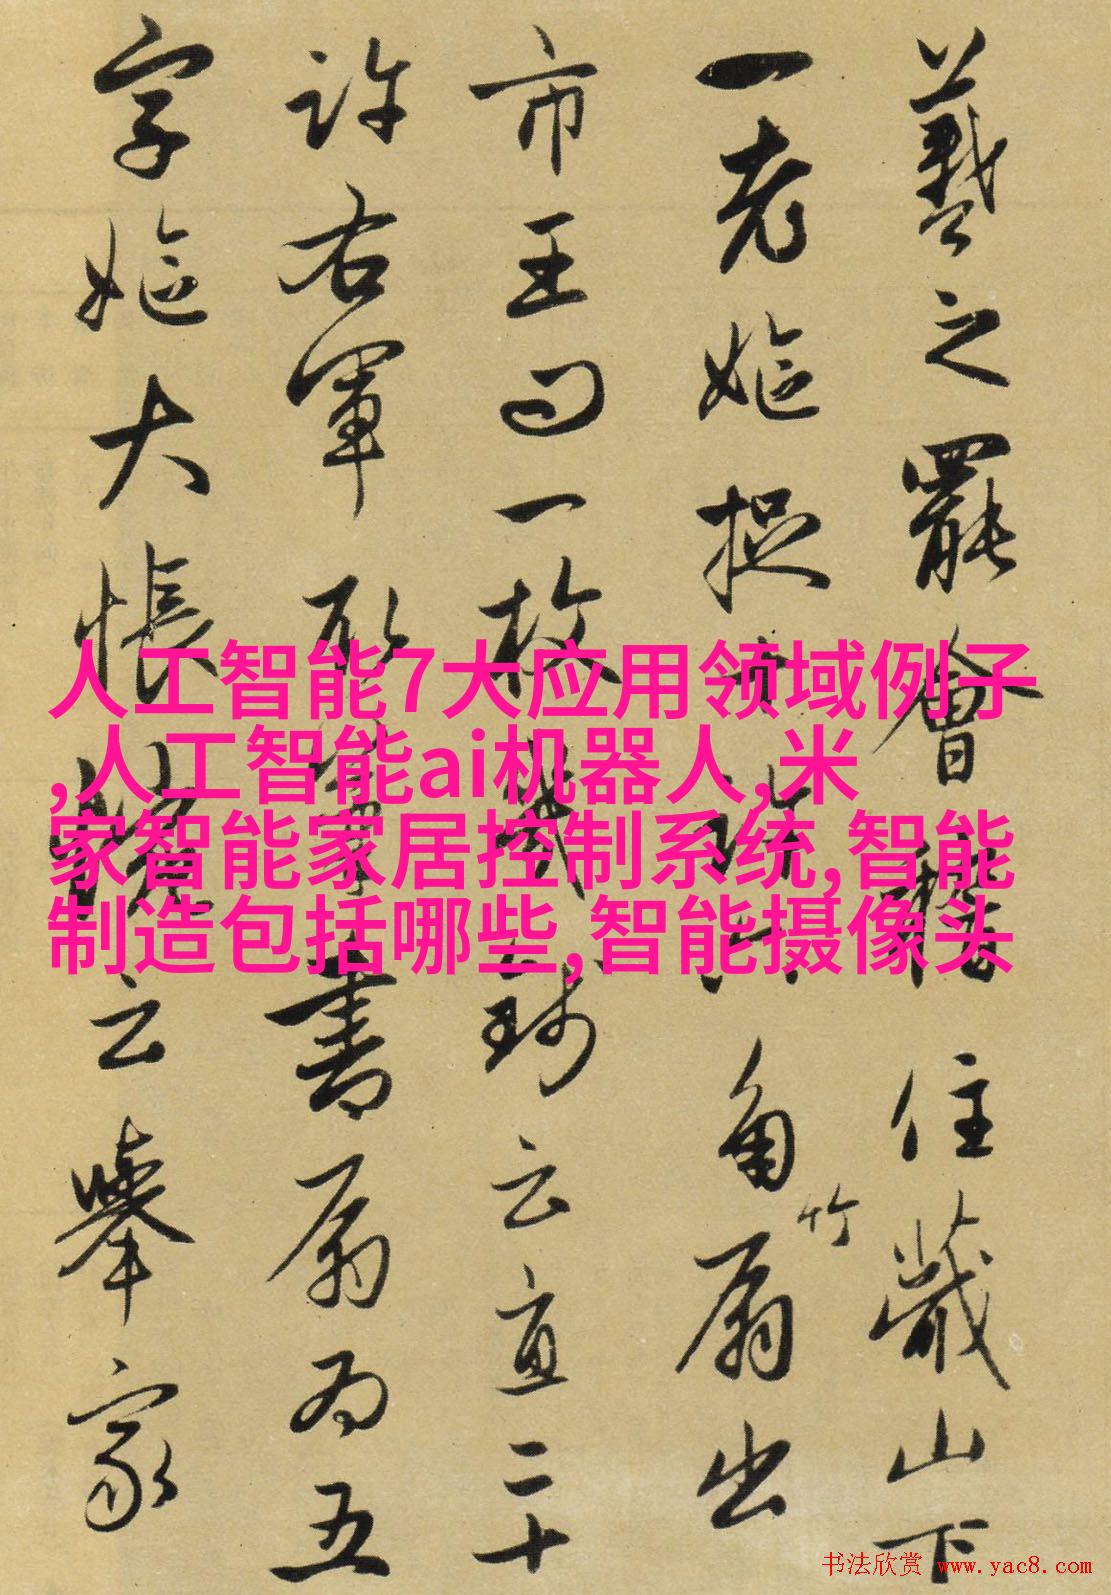 羲之罷會稽住蕺山下
一老嫗捉十許六角竹扇出
市王問一枚幾錢云直二十
許右軍取筆書扇為五
字嫗大悵惋云舉家
人工智能7大应用领域例子
,人工智能ai机器人,米
家智能家居控制系统,智能
制造包括哪些,智能摄像头
书法欣赏 www.yac8.com